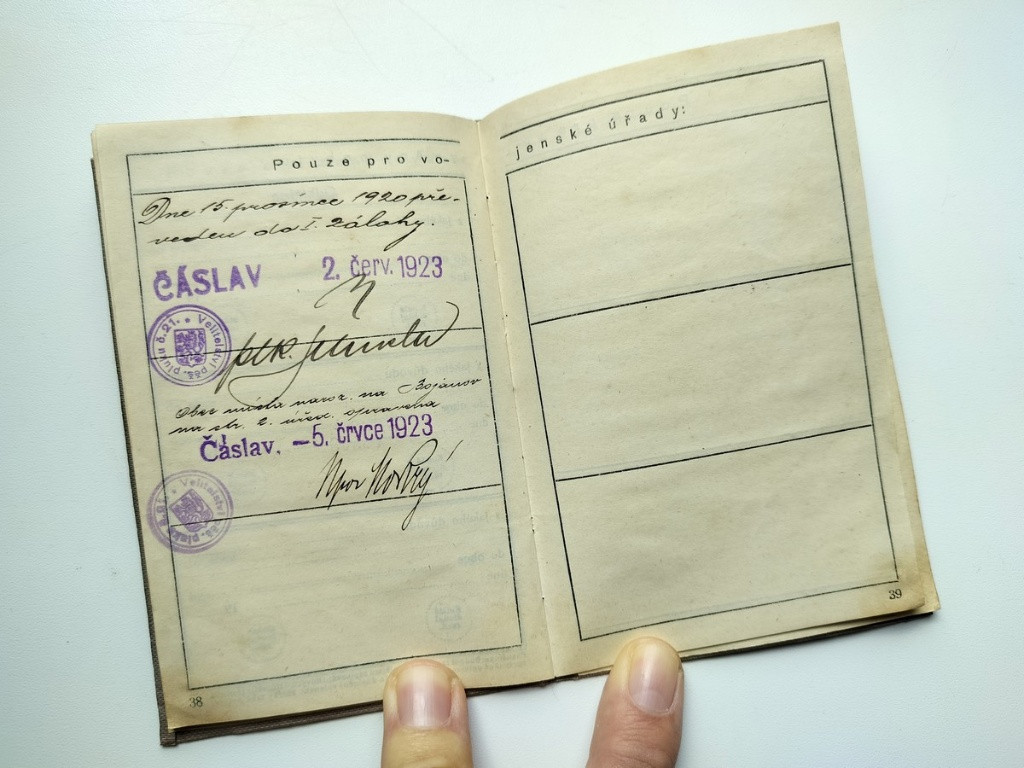 Pouze pro vo-
Dne 15. prosince 1920 pře-
veden do I. zálohy.
ČÁSLAV 2. červ. 1923
Velitelství pěš. pluku č. 21.
plk.
Obec místa naroz. na Bojanov
na str. 2. úřed. opravena
Čáslav. -5. črvce 1923
Npor
Velitelství pěš. pluku č. 21.
38
jenské úřady:
39